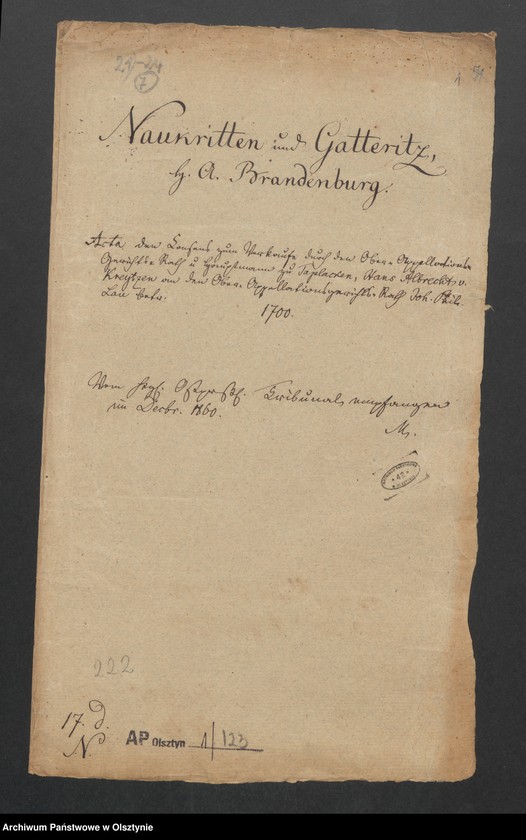 7
1
Naukritten und Gatteritz,
A. Brandenburg.
Acta den Consens zum Verkaufe durch den Ober-Appellations-
Gerichts-Rath u Hauptmann zu Taplacken, Hans Albrecht v.
Kreytzen an den Ober-Appellationsgerichts-Rath Joh. Phil.
Lau betr.
1700.
Vom Tribunal empfangen
im Decbr. 1860.
M.
222
17. d.
N.
AP Olsztyn 1/123
Archiwum Państwowe w Olsztynie